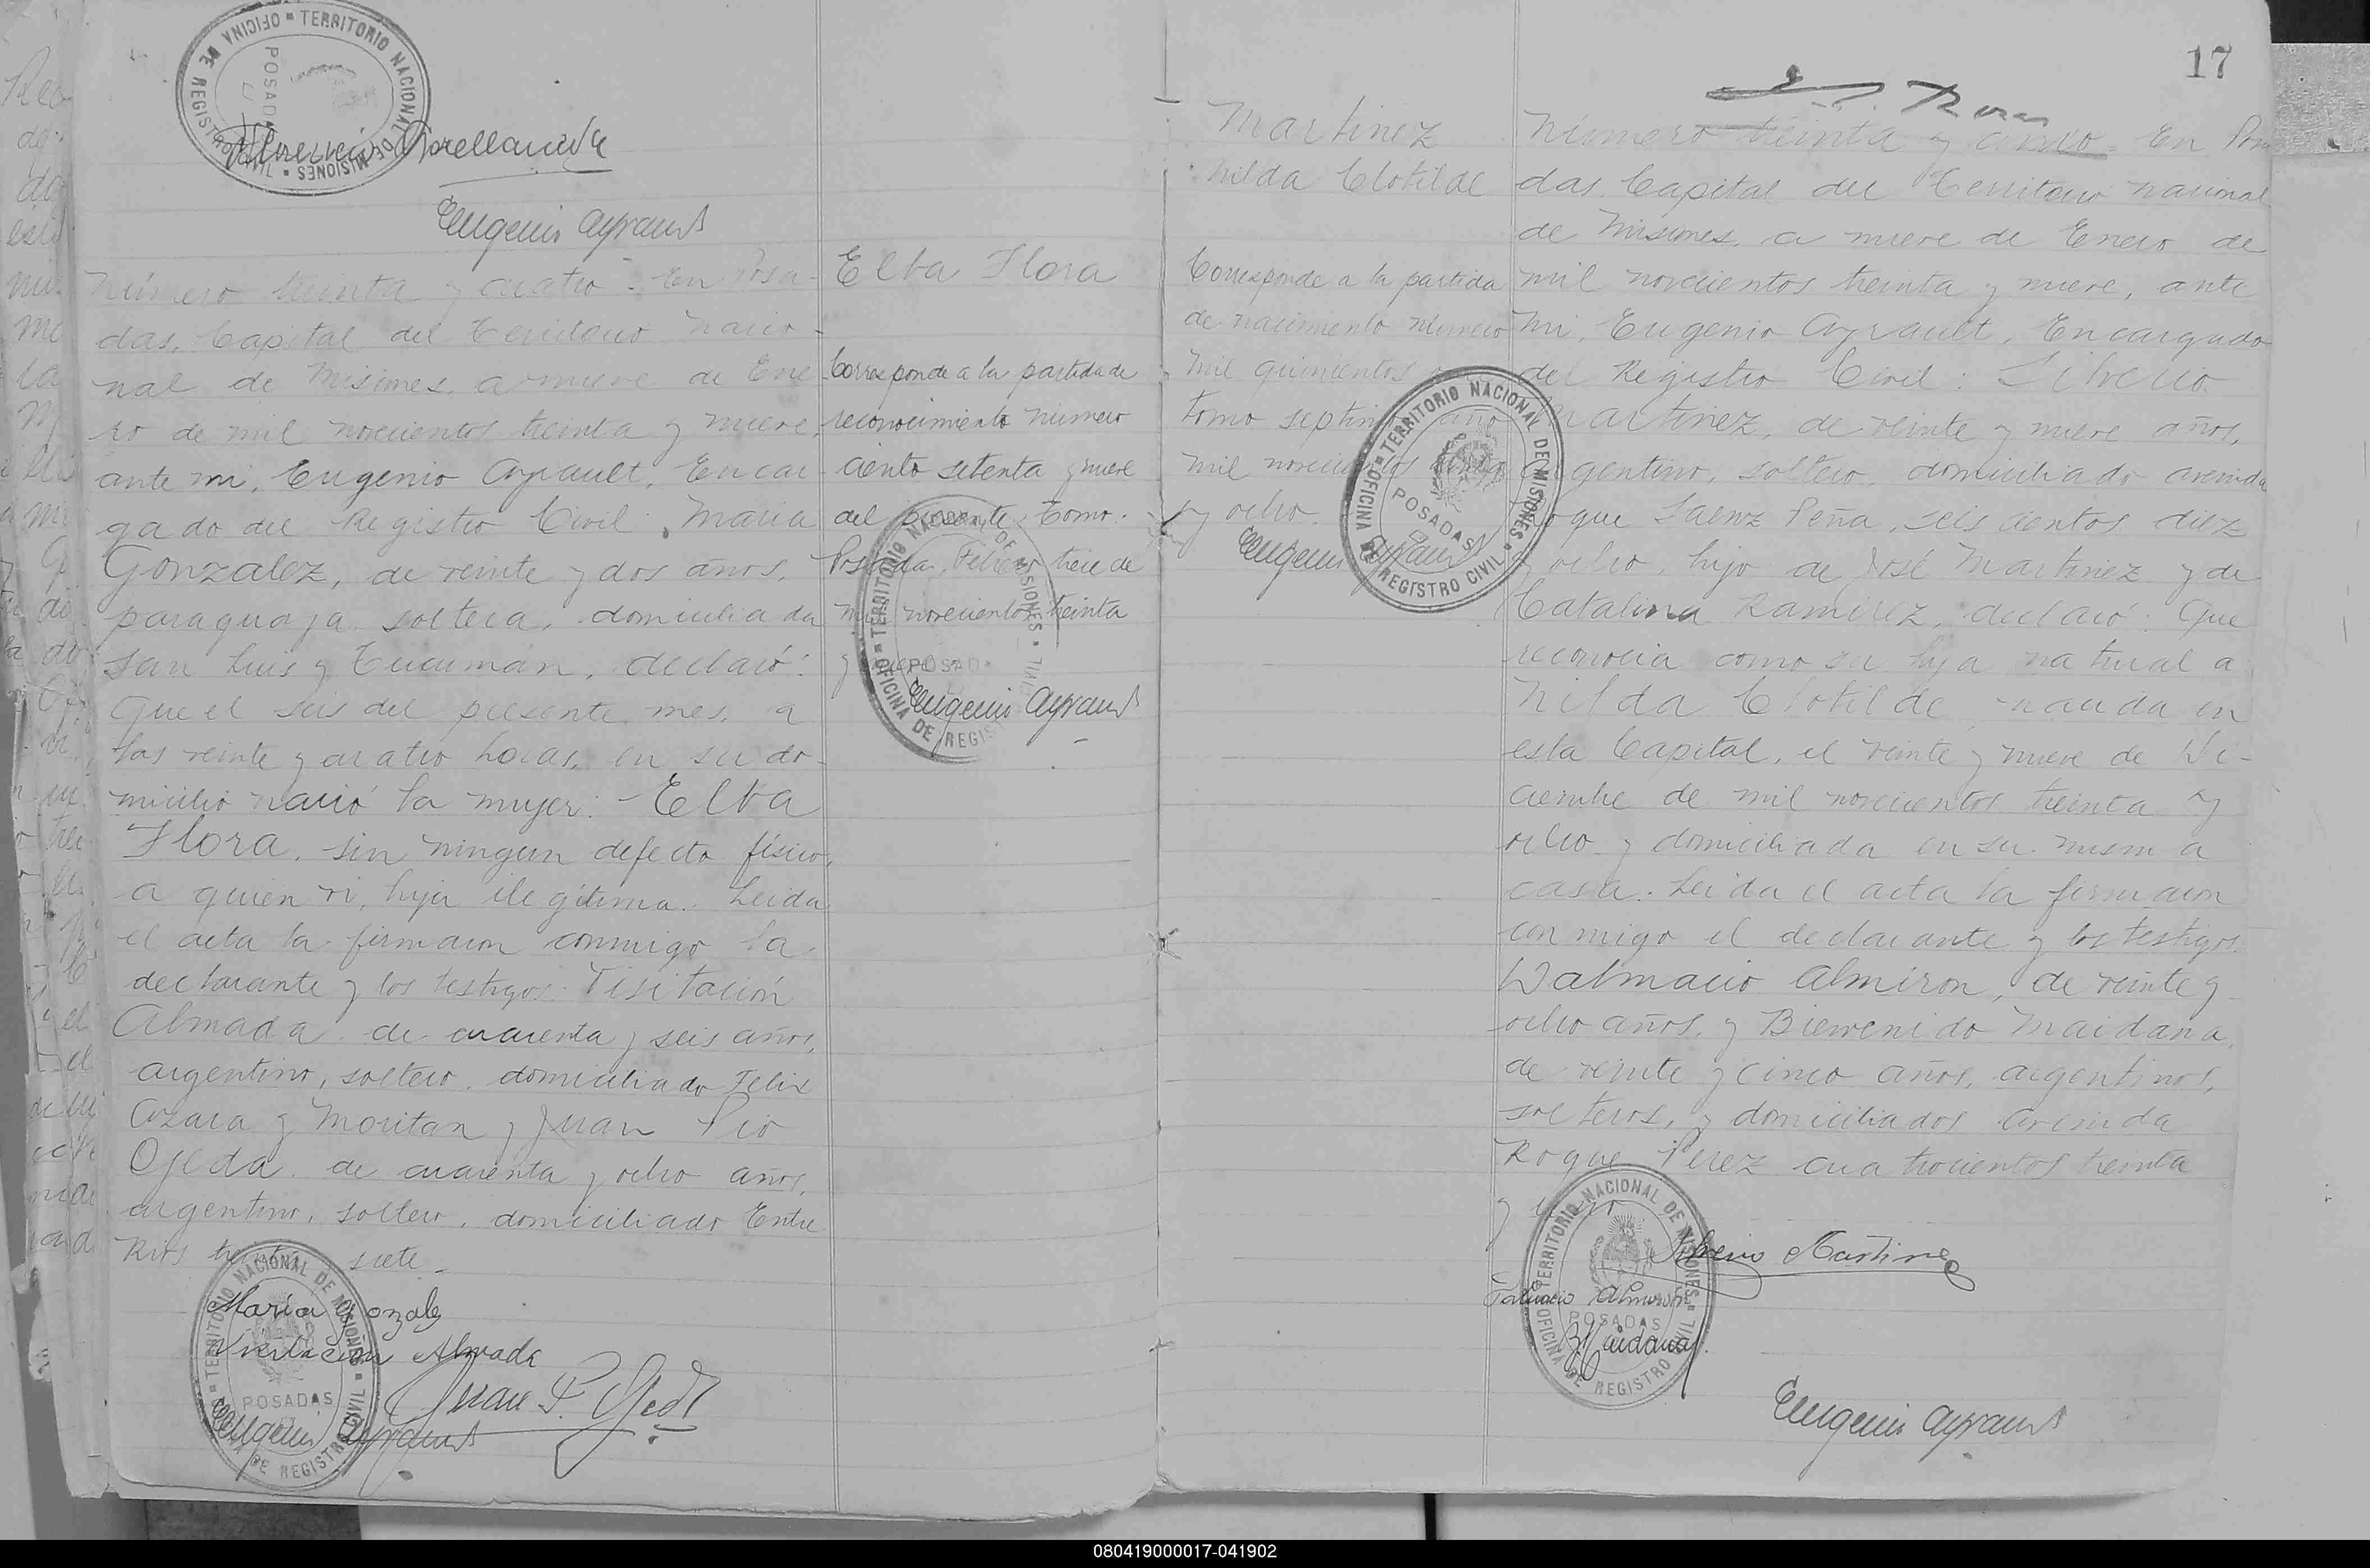 OFICINA DE REGISTRO CIVIL TERRITORIO NACIONAL DE MISIONES
POSADAS
Eugenio Ayrault
Número treinta y cuatro. En Posa-
das, Capital del Territorio Nacio-
nal de Misiones, a nueve de Ene-
ro de mil novecientos treinta y nueve,
ante mi, Eugenio Ayrault, Encar-
gado del Registro Civil: María
Gonzalez, de veinte y dos años,
paraguaya, soltera, domiciliada
San Luis y Tucumán, declaró:
Que el seis del presente mes, a
las veinte y cuatro horas, en su do-
micilio nació la mujer: - Elba
Flora, sin ningun defecto físico,
a quien vi, hija ilegítima. Leida
el acta la firmaron conmigo la
declarante y los testigos: Visitación
Almada, de cuarenta y seis años,
argentino, soltero, domiciliado Felix
Azara y Moritan y Juan Pio
Ojeda, de cuarenta y ocho años,
argentino, soltero, domiciliado Entre
Rios treinta siete.
María Gonzalez
Visitación Almada
Juan P. Ojeda
Eugenio Ayrault
TERRITORIO NACIONAL DE MISIONES
POSADAS
OFICINA DE REGISTRO CIVIL
Elba Flora
Corresponde a la partida de
reconocimiento número
ciento setenta y nueve
del presente tomo.
Posadas, Febrero trece de
mil novecientos treinta
y nueve
Eugenio Ayrault
17
Martinez
Nilda Clotilde
Corresponde a la partida
de nacimiento número
mil quinientos
tomo septimo año
mil novecientos treinta
y ocho.
Eugenio Ayrault
TERRITORIO NACIONAL DE MISIONES
POSADAS
OFICINA DE REGISTRO CIVIL
Número treinta y cinco. En Posa
das, Capital del Territorio Nacional
de Misiones, a nueve de Enero de
mil novecientos treinta y nueve, ante
mi, Eugenio Ayrault, Encargado
del Registro Civil: Silverio
Martinez, de veinte y nueve años,
argentino, soltero, domiciliado avenida
Roque Saenz Peña, seiscientos diez
y ocho, hijo de José Martinez y de
Catalina Ramirez, declaró: Que
reconocia como su hija natural a
Nilda Clotilde, nacida en
esta Capital, el veinte y nueve de Di-
ciembre de mil novecientos treinta y
ocho y domiciliada en su misma
casa. Leida el acta la firmaron
conmigo el declarante y los testigos:
Dalmacio Almiron, de veinte y
ocho años, y Bienvenido Maidana,
de veinte y cinco años, argentinos,
solteros, y domiciliados avenida
Roque Perez cuatrocientos treinta
y
Silverio Martinez
Dalmacio Almiron
B. Maidana
Eugenio Ayrault
TERRITORIO NACIONAL DE MISIONES
POSADAS
OFICINA DE REGISTRO CIVIL
080419000017-041902